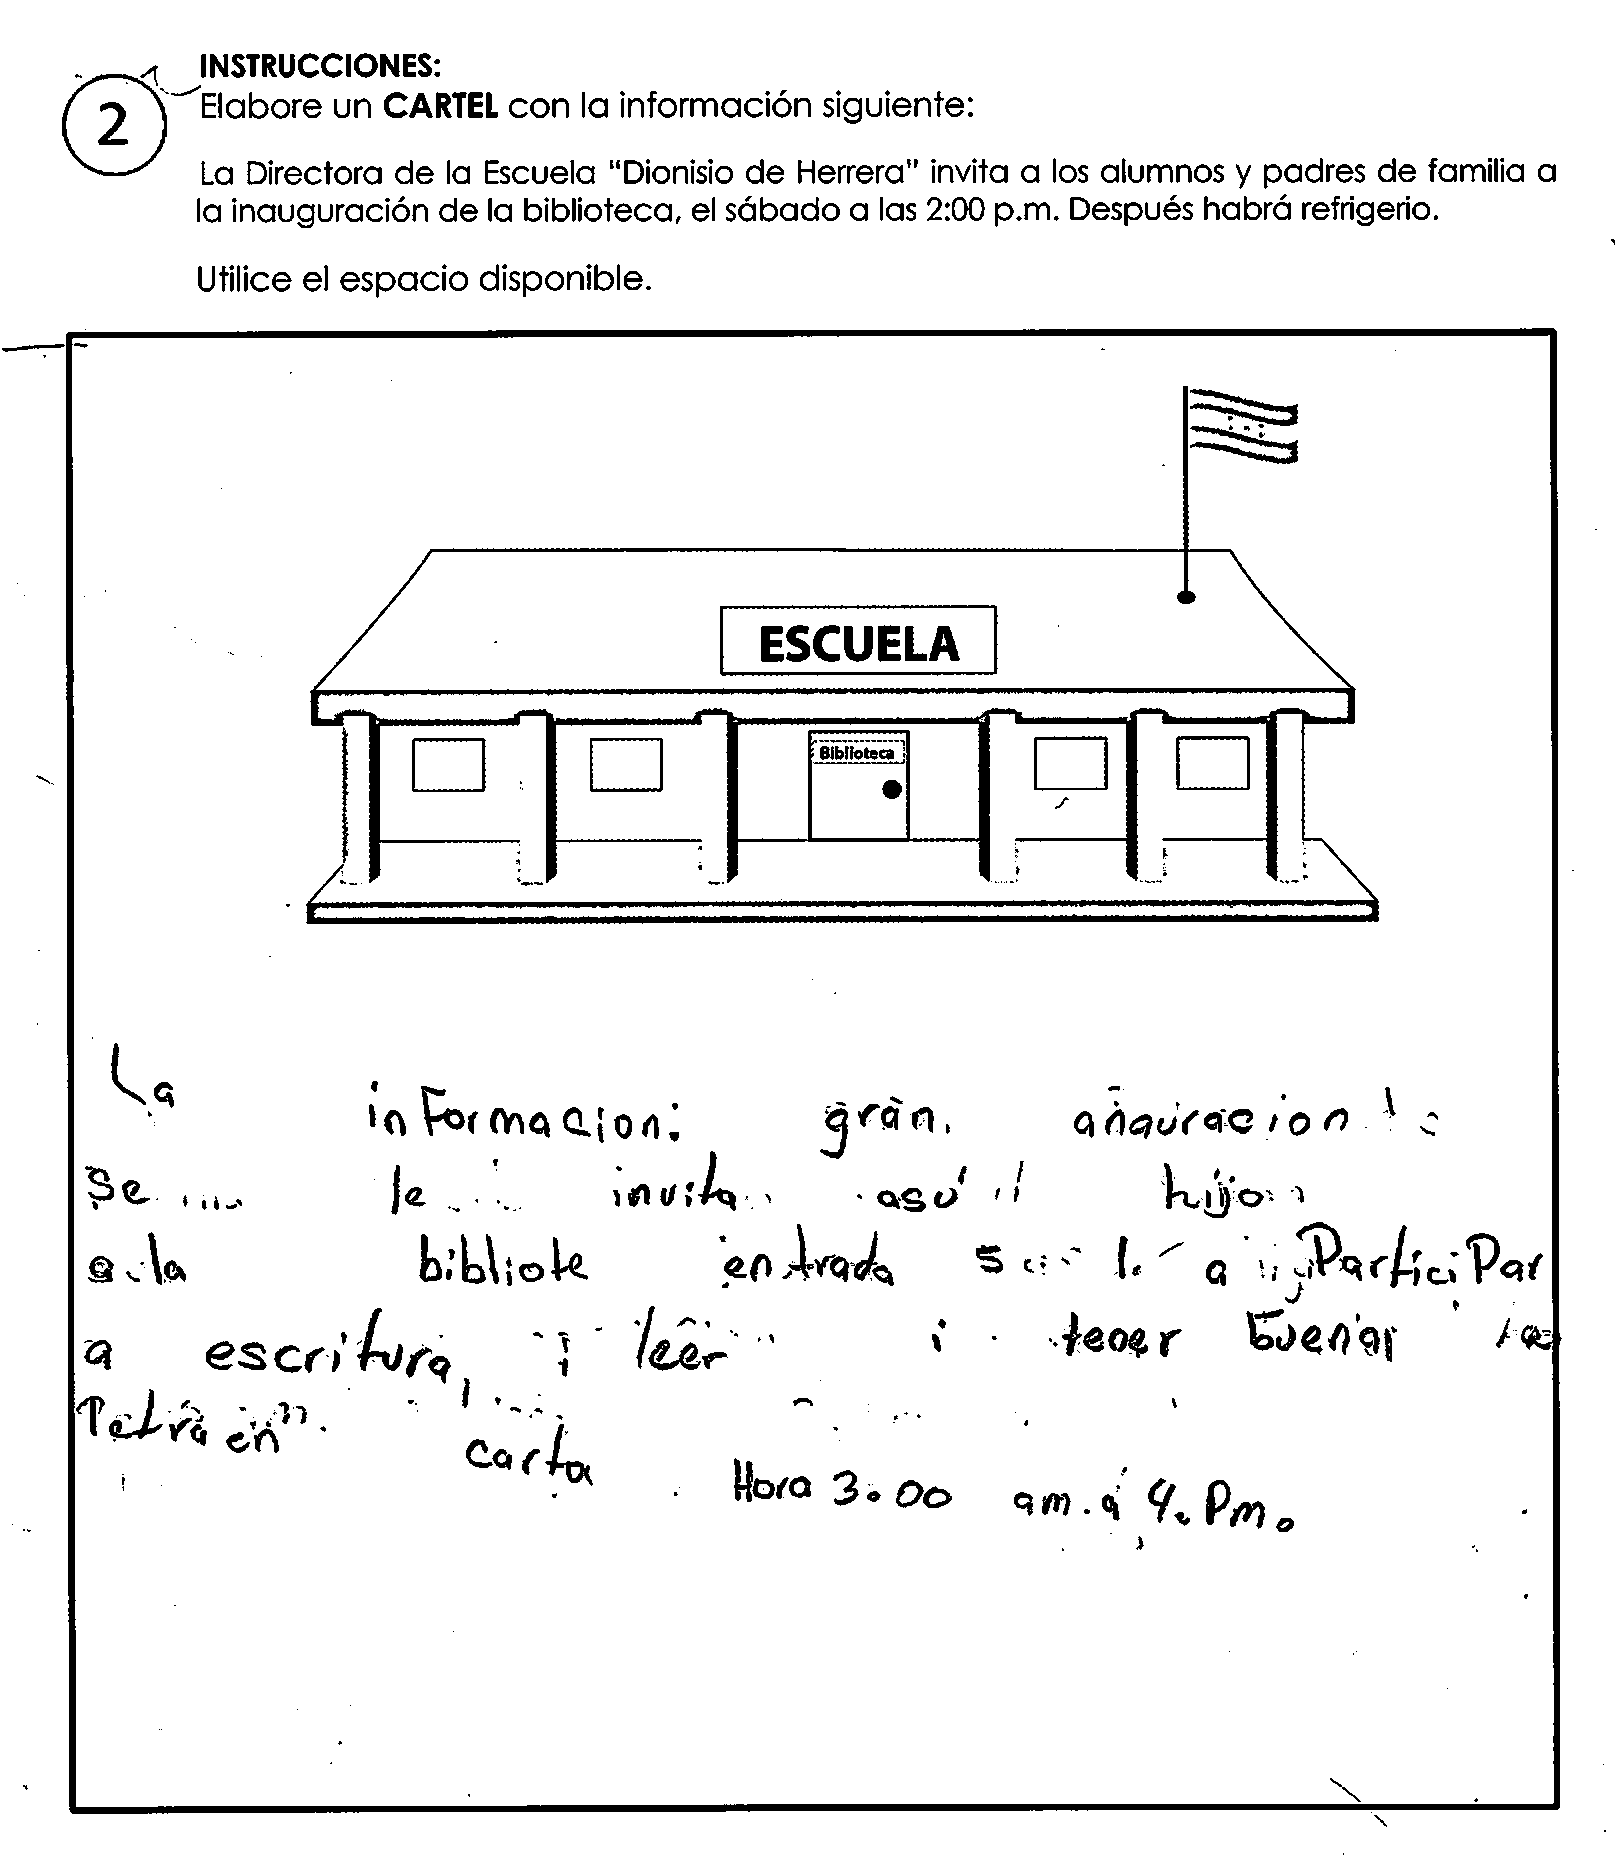 INSTRUCCIONES:
2
Elabore un CARTEL con la información siguiente:
La Directora de la Escuela "Dionisio de Herrera" invita a los alumnos y padres de familia a
la inauguración de la biblioteca, el sábado a las 2:00 p.m. Después habrá refrigerio.
Utilice el espacio disponible.
ESCUELA
Biblioteca
La informacion: gran
Se le invita hijo
a la bibliote entrada a Participar
a escritura, i leer i tener buena
carta Hora 3.00 am. a 4. Pm.